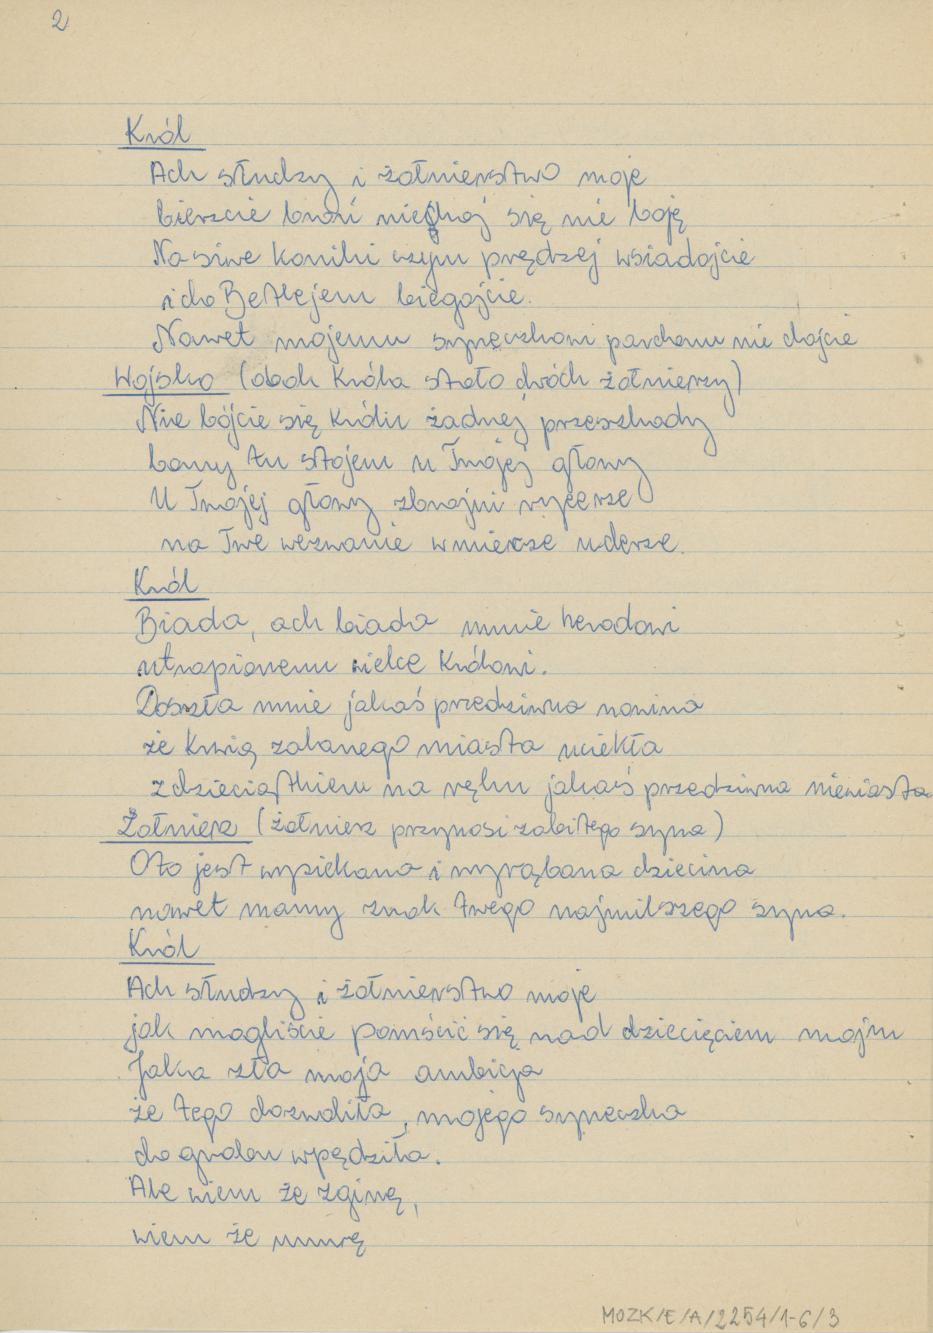 2
Król
Ach słudzy i żołnierstwo moje
bierzcie broń niechaj się nie boję
Na siwe koniki czym prędzej wsiadajcie
i do Betlejem biegajcie.
Nawet mojemu syneczkowi pardonu nie dajcie
Wojsko (obok Króla stało dwóch żołnierzy)
Nie bójcie się Królu żadnej przeszkody
bo my tu stojem u Twojej głowy
U Twojej głowy zbrojni rycerze
na Twe wezwanie w mierze uderze.
Król
Biada, ach biada mnie herodowi
utrapionemu wielce Królowi.
Doszła mnie jakaś przedziwna nowina
że krwią zalanego miasta uciekła
z dzieciątkiem na ręku jakaś przedziwna niewiasta
Żołnierz (żołnierz przynosi zabitego syna)
Oto jest wysiekana i wyrąbana dziecina
nawet mamy znak twego najmilszego syna.
Król
Ach słudzy i żołnierstwo moje
jak mogliście pomścić się nad dziecięciem mojm
Jaka zła moja ambicja
że tego dozwoliła, mojego syneczka
do grobu wpędziła.
Ale wiem że zginę,
wiem że umrę
MOZK/E/A/2254/1-6/3